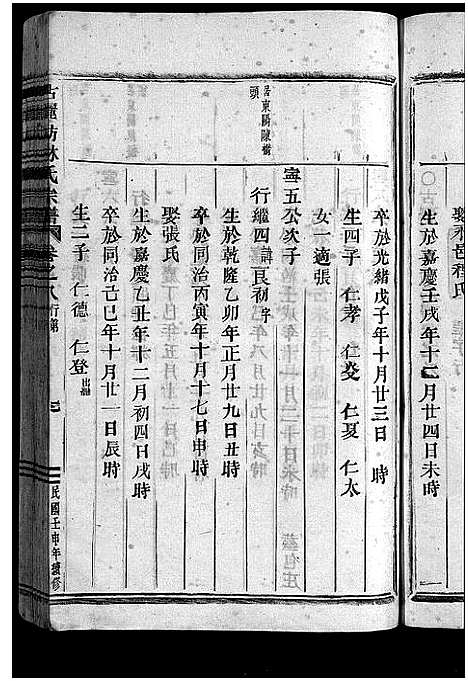 娶永邑程氏
生於嘉慶壬戌年十二月廿四日未時
卒於光緒戊子年十月廿三日　時
生四子　仁孝　仁炎　仁夏　仁太
女一適張
居東陽陳樹頭
寧五公次子
行繼四諱良初字
生於乾隆乙卯年正月廿九日丑時
卒於同治丙寅年十月十七日申時
娶張氏
生於嘉慶乙丑年十二月初四日戌時
卒於同治己巳年十月廿一日辰時
生二子　仁德　仁登出繼
林氏宗譜　卷之八行第　民國壬申年續修